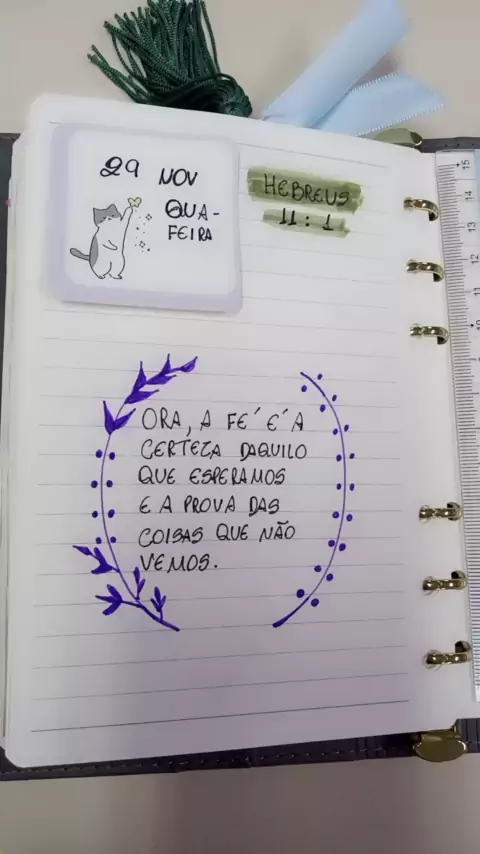 29 NOV
QUA-
FEIRA
HEBREUS
11:1
ORA, A FÉ É A
CERTEZA DAQUILO
QUE ESPERAMOS
E A PROVA DAS
COISAS QUE NÃO
VEMOS.
15
14
13
12
11
10